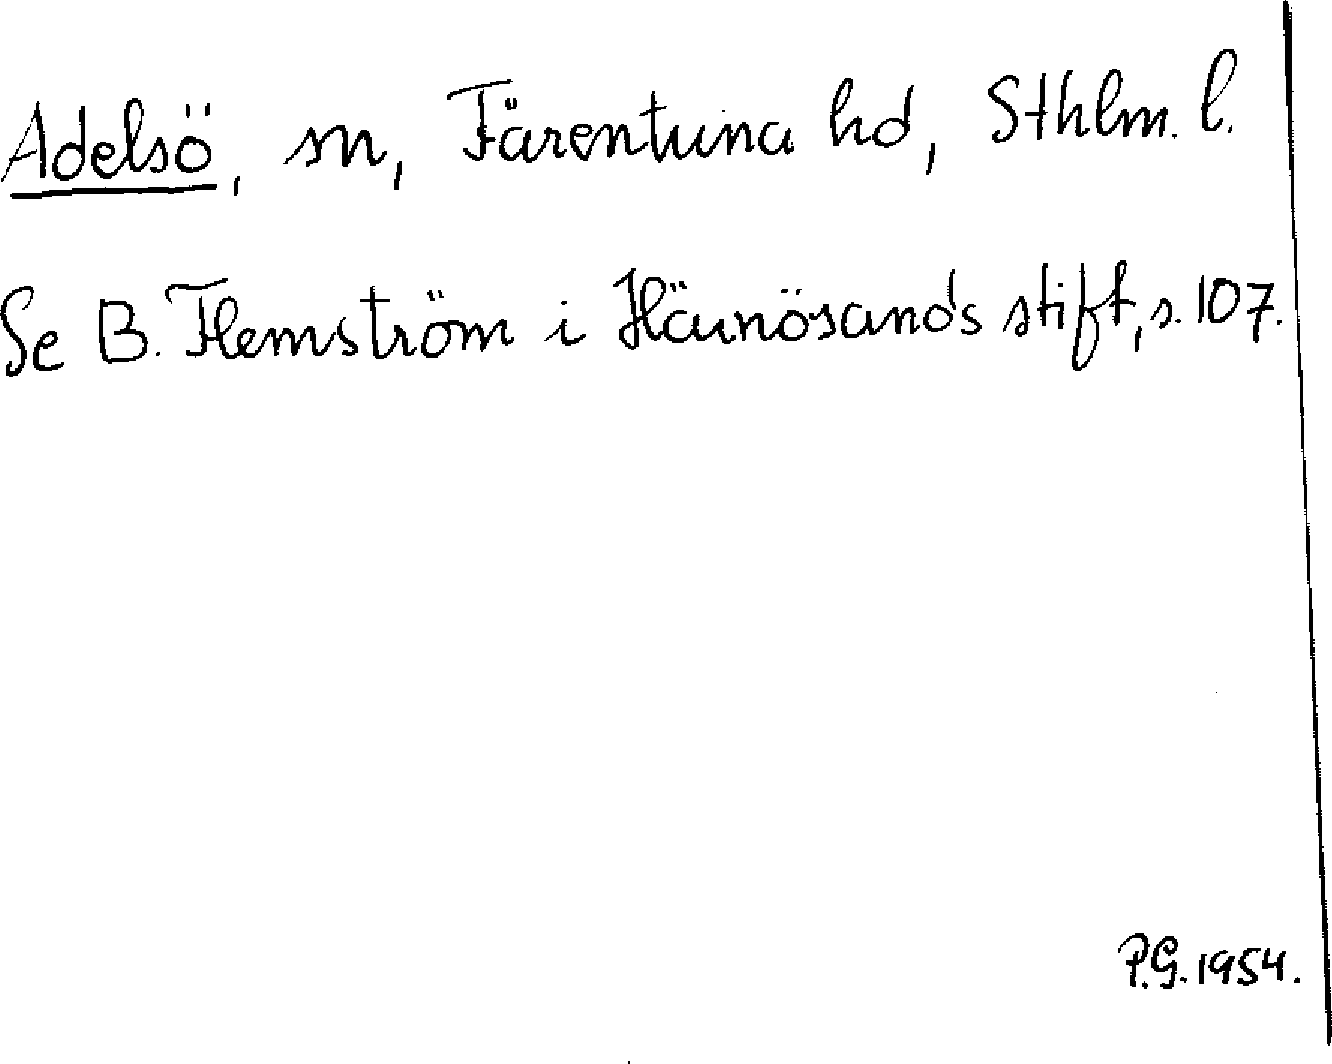 Adelsö, sn, Färentuna hd, Sthlm. l.
Se B. Flemström i Härnösands stift, s. 107.
P.G. 1954.